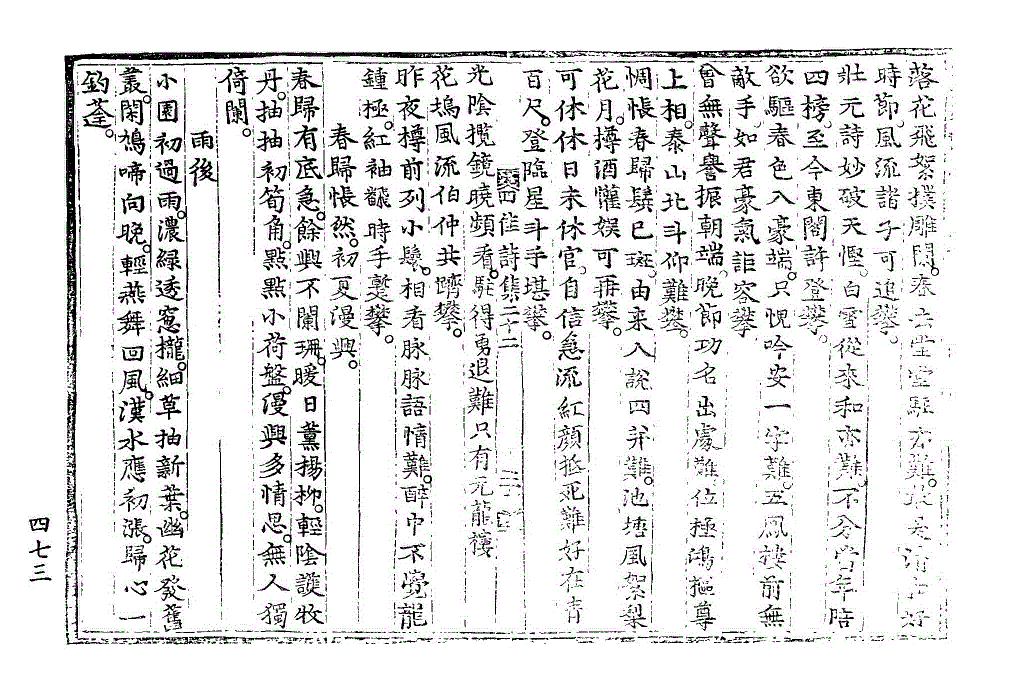 落花飛絮撲雕闌。春去堂堂駐亦難。最是清和好
時節風流諸子可追攀。
壯元詩妙破天慳。白雪從來和亦難。不分當年陪
四榜。至今東閣許登攀。
欲驅春色入豪端。只恨吟安一字難。五鳳樓前無
敵手。如君豪氣詎容攀
曾無聲譽振朝端。晚節功名出處難。位極鴻樞尊
上相。泰山北斗仰難攀。
惆悵春歸鬂已斑。由来人說四并難。池塘風絮梨
花月。樽酒懽娱可再攀。
可休休日未休官。自信急流紅顔抵死難好在青
百尺。登臨星斗手堪攀。
四佳詩集二十二
光陰攬鏡曉頻看。駐得勇退難只有元龍樓
花塢風流伯仲共躋攀。
昨夜樽前列小鬟。相看脉脉語情難。醉巾不覺龍
鍾極。紅袖飜時手蹔攀。
春歸悵然。初夏漫興。
春歸有底急。餘興不闌珊。暖日薰楊柳。輕陰護牧
丹。抽抽初筍角。點點小荷盤。漫興多情思。無人獨
倚闌。
雨後
小園初過雨。濃綠透窓櫳。細草抽新葉。幽花發舊
叢。閑鳩啼向晚。輕燕舞回風。漢水應初漲。歸心一
釣蓬。
四七三